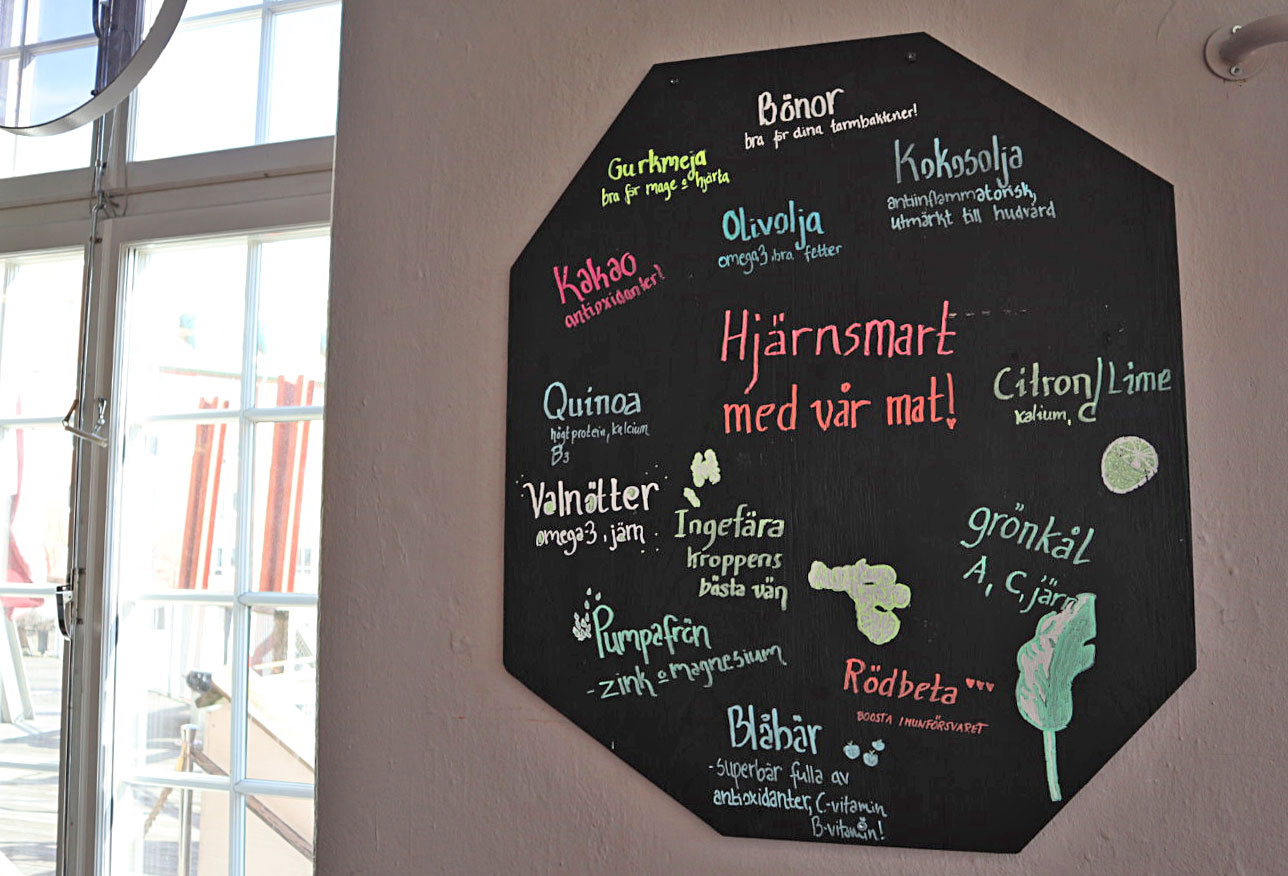 Bönor
bra för dina tarmbakterier!
Gurkmeja
bra för mage o hjärta
Kokosolja
antiinflammatorisk,
utmärkt till hudvård
Olivolja
omega3, bra fetter
Kakao
antioxidanter!
Hjärnsmart
med vår mat!
Citron/Lime
kalium, C
Quinoa
högt protein, kalcium
B3
Valnötter
omega-3, järn
Ingefära
kroppens
bästa vän
grönkål
A, C, järn
Pumpafrön
-zink o magnesium
Rödbeta
BOOSTA IMUNFÖRSVARET
Blåbär
-superbär fulla av
antioxidanter, C-vitamin
B-vitamin!